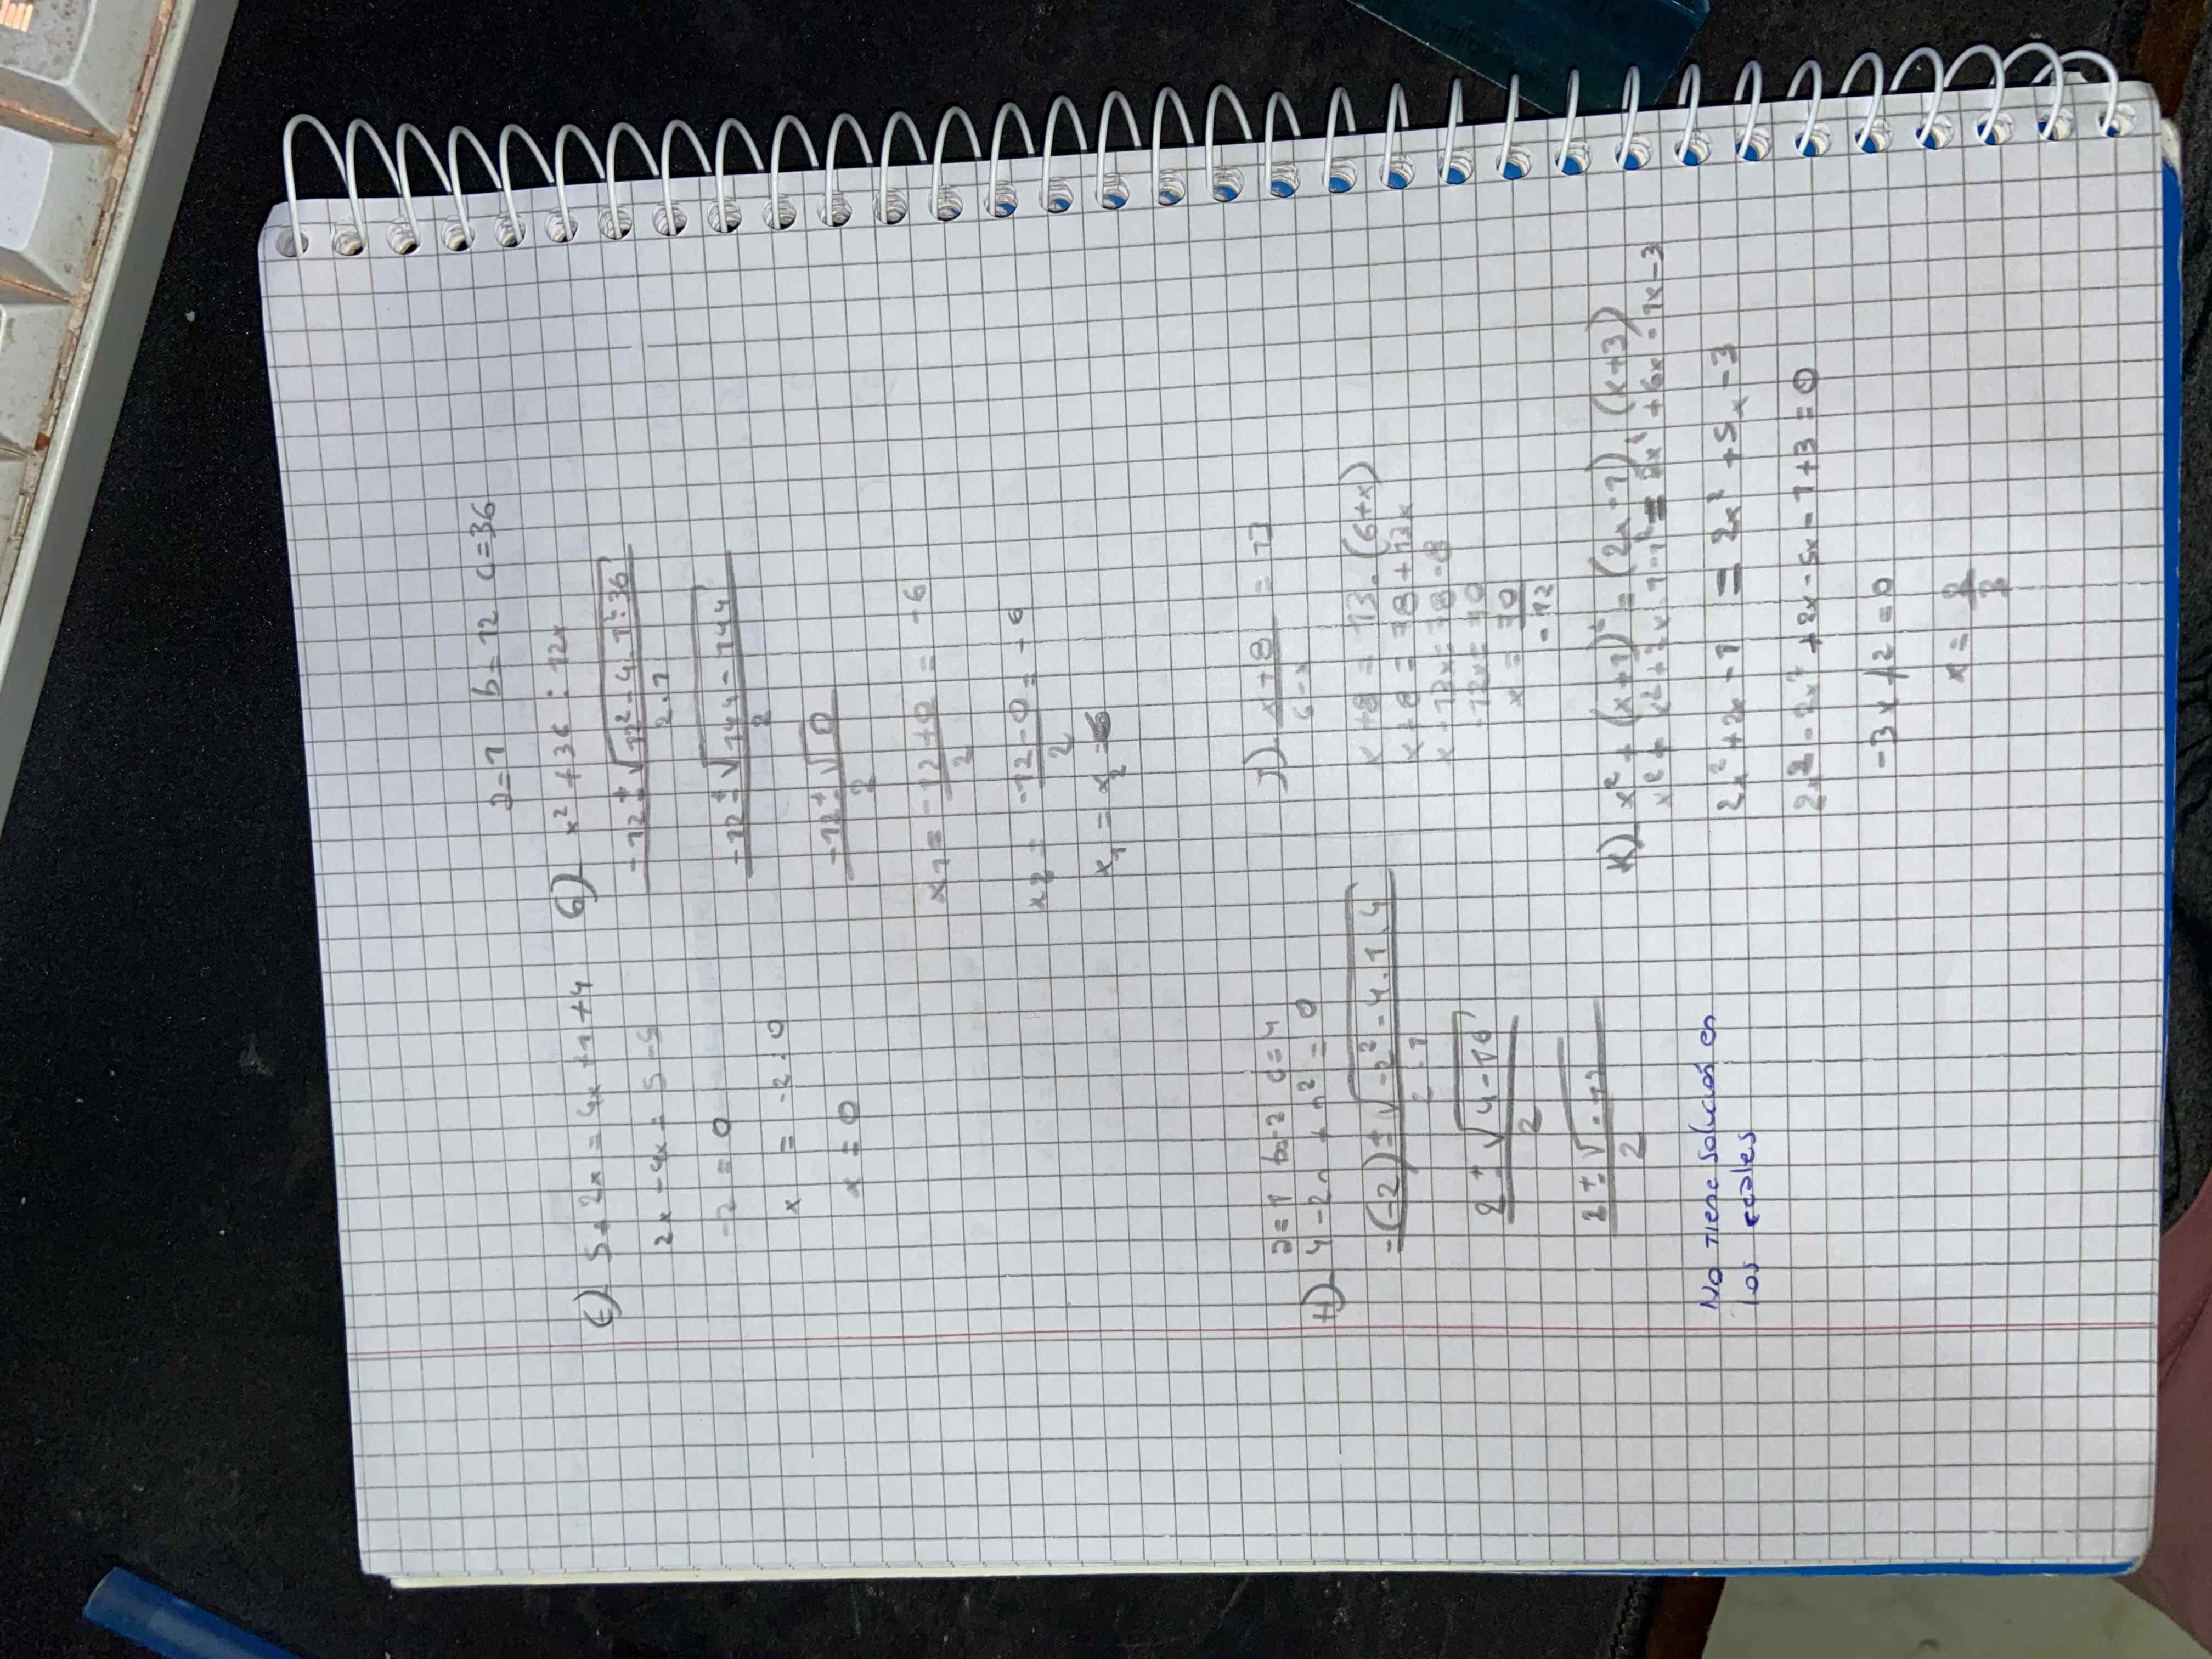 E) 5+2x = 4x+1+4
2x-4x = 5-5
-2 = 0
x = -2 : 0
x = 0
a=1 b=12 c=36
G) x² + 36 = 12x
-12 ± √12² - 4.1.36
2.1
-12 ± √144 - 144
2
-12 ± √0
2
x1 = -12+0 = -6
2
x2 = -12-0 = -6
2
x₁ = x₂ = 6
a=1 b=-2 c=4
H) 4 - 2n + n² = 0
-(-2) ± √-2² - 4.1.4
2.1
2 ± √4-16
2
2 ± √-12
2
No tiene solución en
los reales
J) x+8 = 13
6-x
x+8 = 13.(6+x)
x+8 = 78+13x
x+12x = 78-8
-12x = 70
x = 70
-12
K) x² + (x+1)² = (2x-1).(x+3)
2x² + 2x - 1 = 2x² + 5x - 3
2x² - 2x² + 2x - 5x - 1 + 3 = 0
-3x + 2 = 0